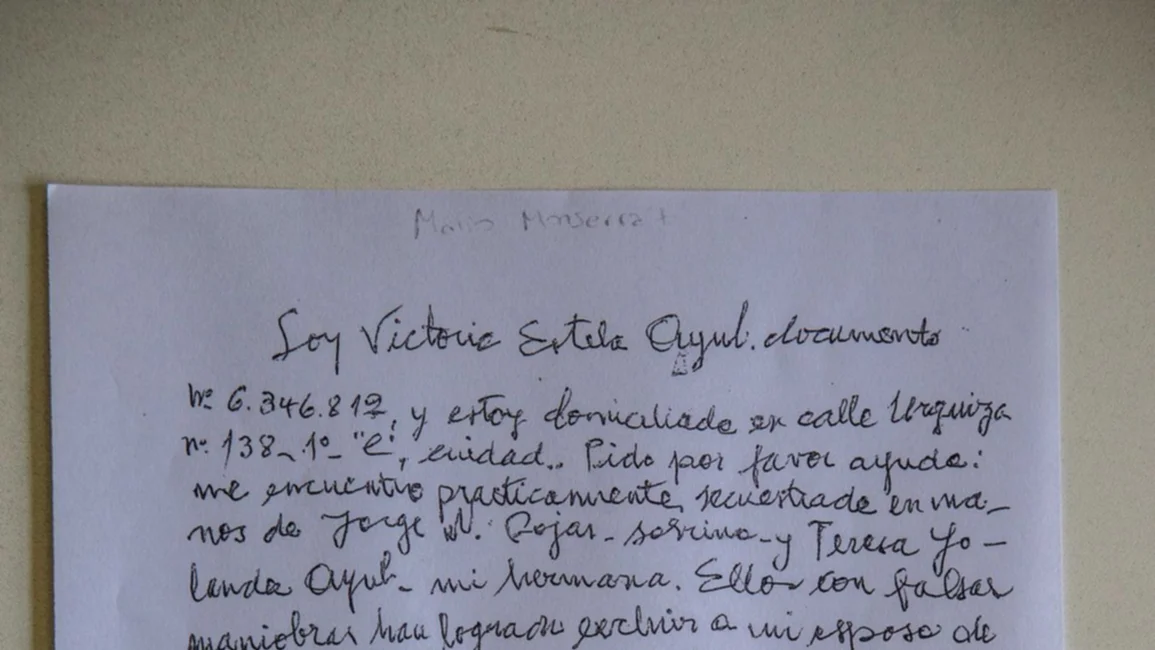 Soy Victoria Estela Ayub. documento
Nº 6.346.812, y estoy domiciliada en calle Urquiza
nº 138-1º-"C", ciudad.. Pido por favor ayuda:
me encuentro practicamente secuestrada en ma-
nos de Jorge Rojas-sobrino-y Teresa Yo-
landa Ayub- mi hermana. Ellos con falsas
maniobras han logrado excluir a mi esposo de